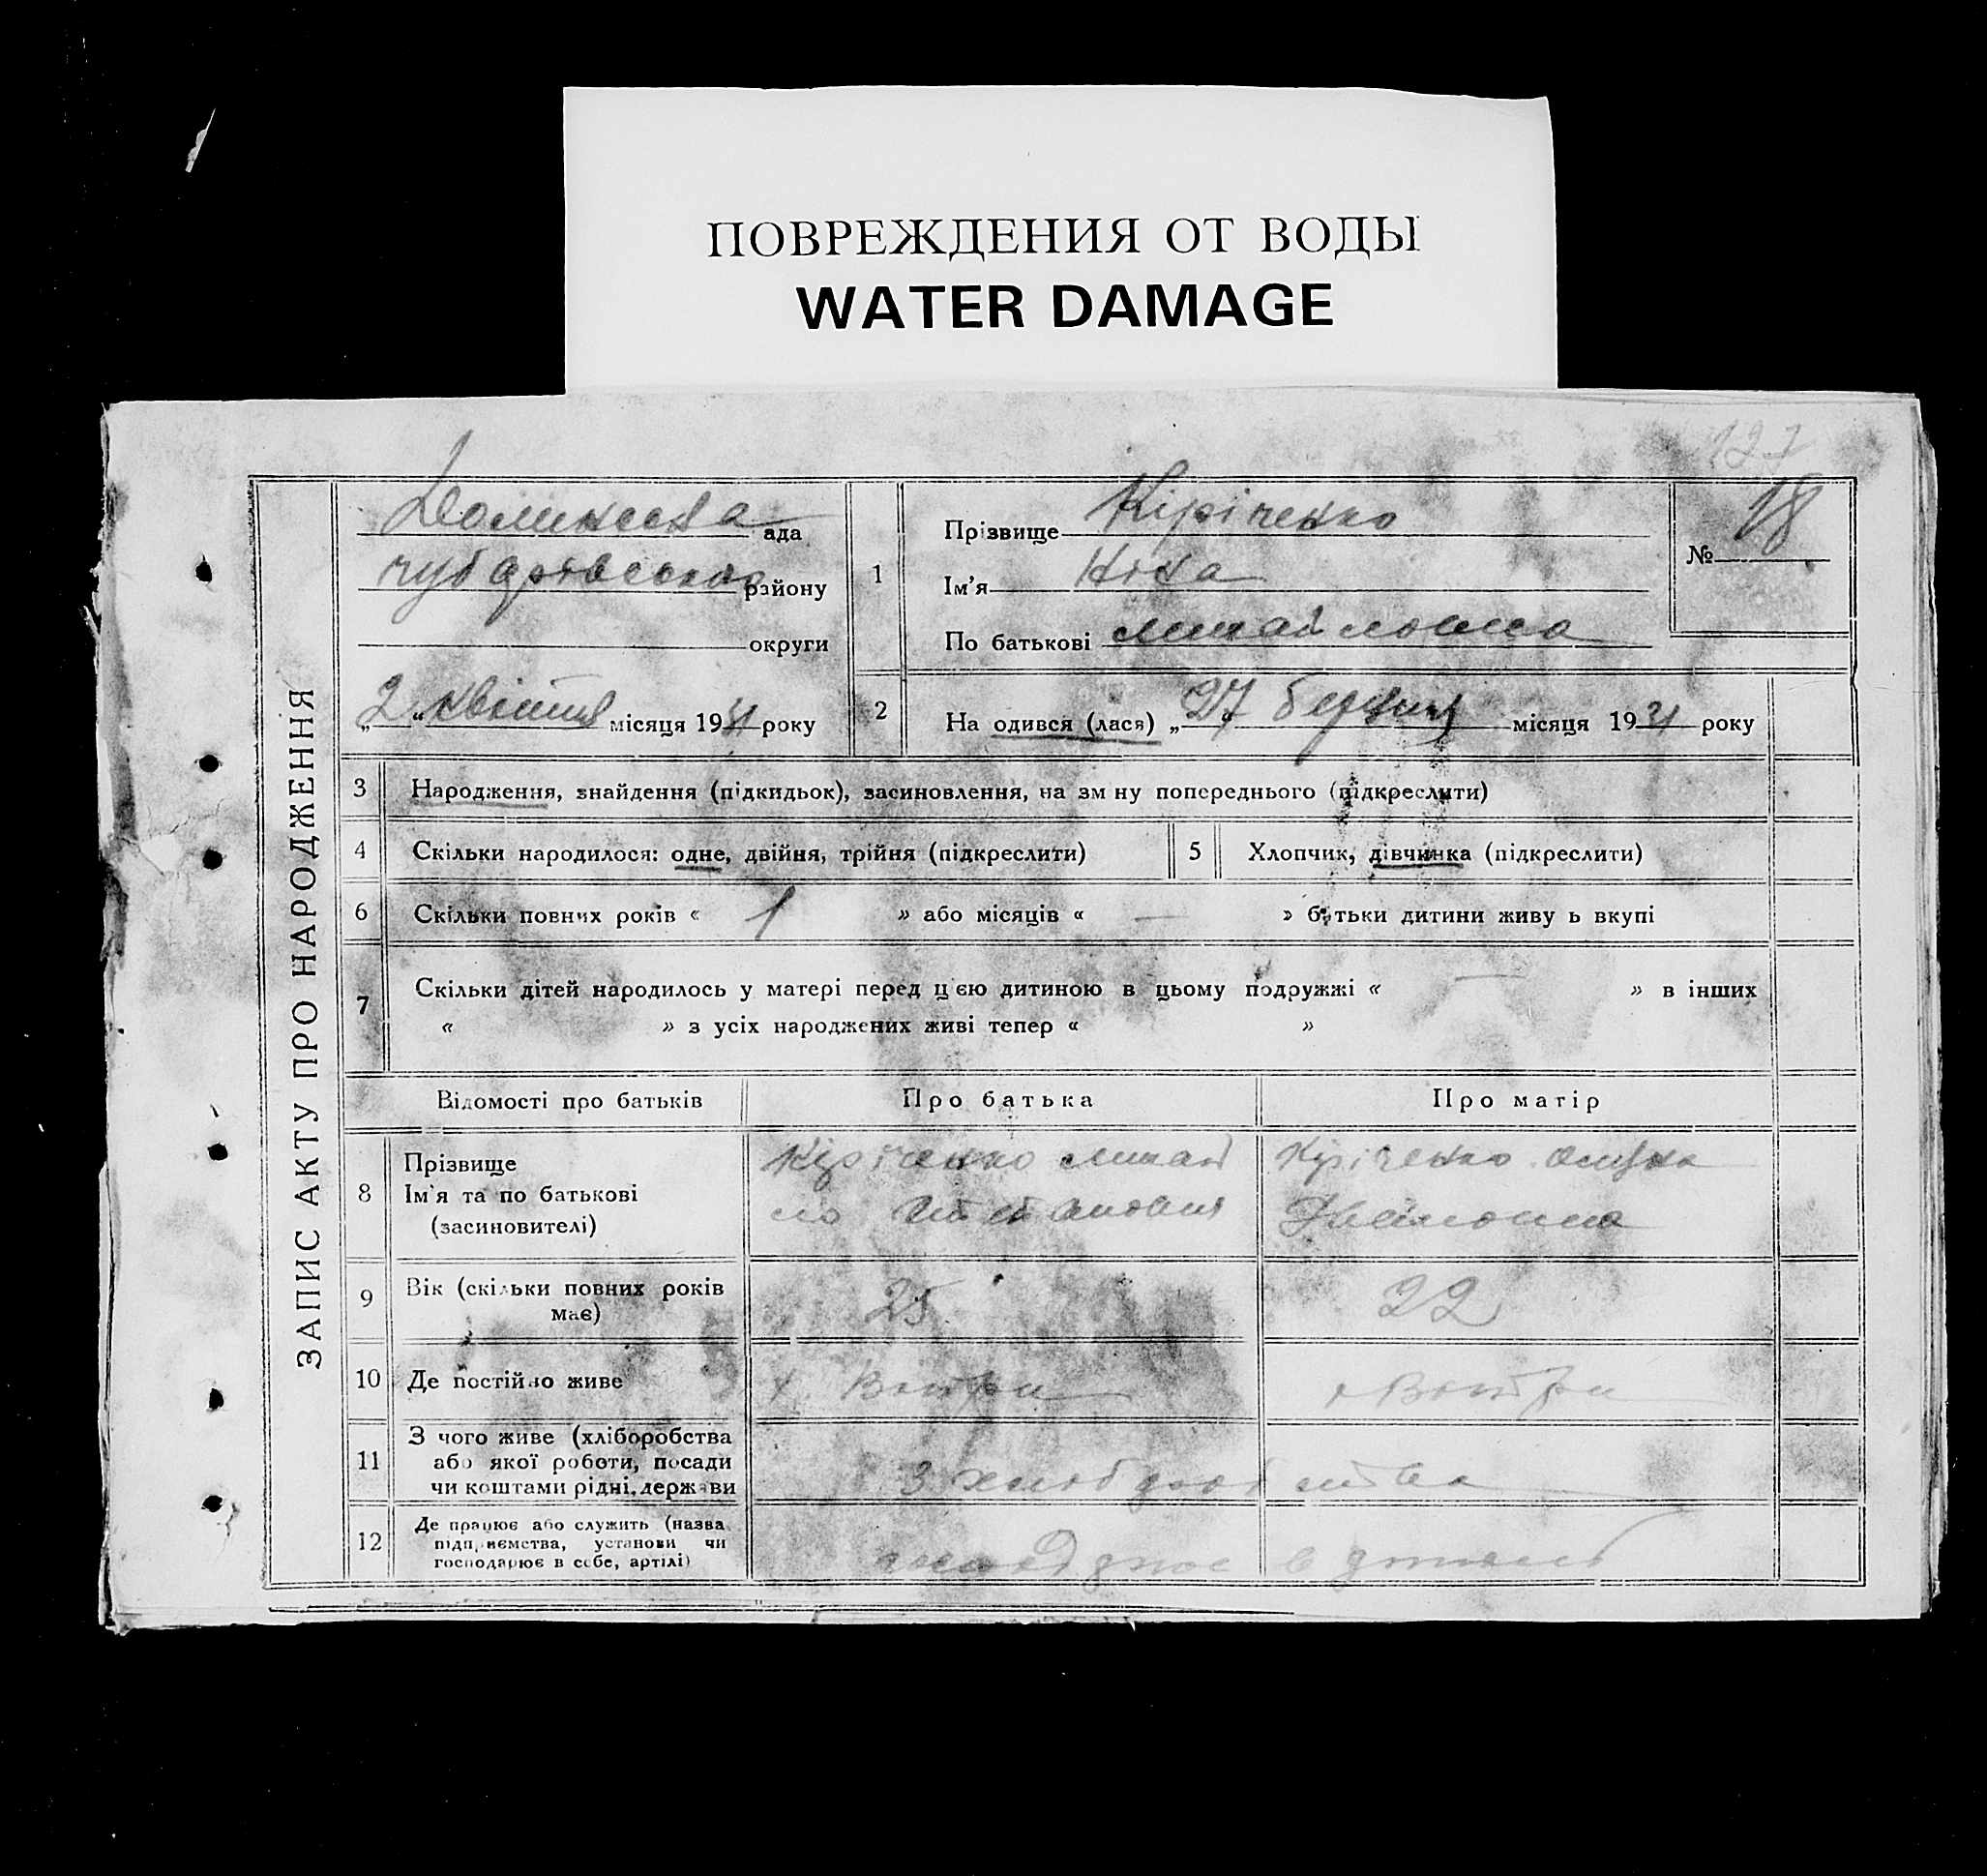 ПОВРЕЖДЕНИЯ ОТ ВОДЫ
WATER DAMAGE
127
ЗАПИС АКТУ ПРО НАРОДЖЕННЯ
ада
району
округи
„2“ квітня місяця 1931 року
1
Прізвище Кіріченко
Ім'я Ніна
По батькові Михайловна
№ 18
2
На одився (лася) „27“ березня місяця 1931 року
3 Народження, знайдення (підкидьок), засиновлення, на зм ну попереднього (підкреслити)
4 Скільки народилося: одне, двійня, трійня (підкреслити)
5 Хлопчик, дівчинка (підкреслити)
6 Скільки повних років « 1 » або місяців « — » батьки дитини живу ь вкупі
7 Скільки дітей народилось у матері перед цією дитиною в цьому подружжі « — » в інших
« » з усіх народжених живі тепер « »
Відомості про батьків
Про батька
Про матір
8
Прізвище
Ім'я та по батькові
(засиновителі)
Кіріченко Михай
ло
Кіріченко
9
Вік (скільки повних років
має)
25
22
10 Де постійно живе
11
З чого живе (хліборобства
або якої роботи, посади
чи коштами рідні, держави
З хліборобства
12
Де працює або служить (назва
підприємства, установи чи
господарює в себе, артілі)
в артілі